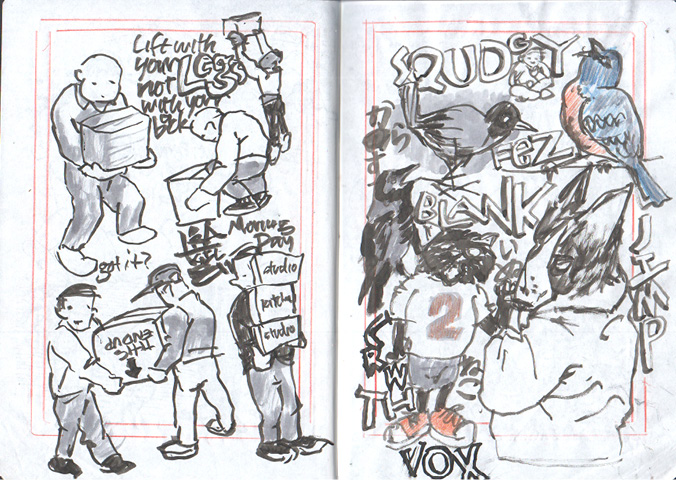 Lift with
your Legs
not
with your
back
got it?
Moving
Day
studio
kitchen
studio
THIS
END UP
SQUDGY
からす
FEZ
BLANK
いぬ
JIMP
2
CRWTH
ねこ
VOX